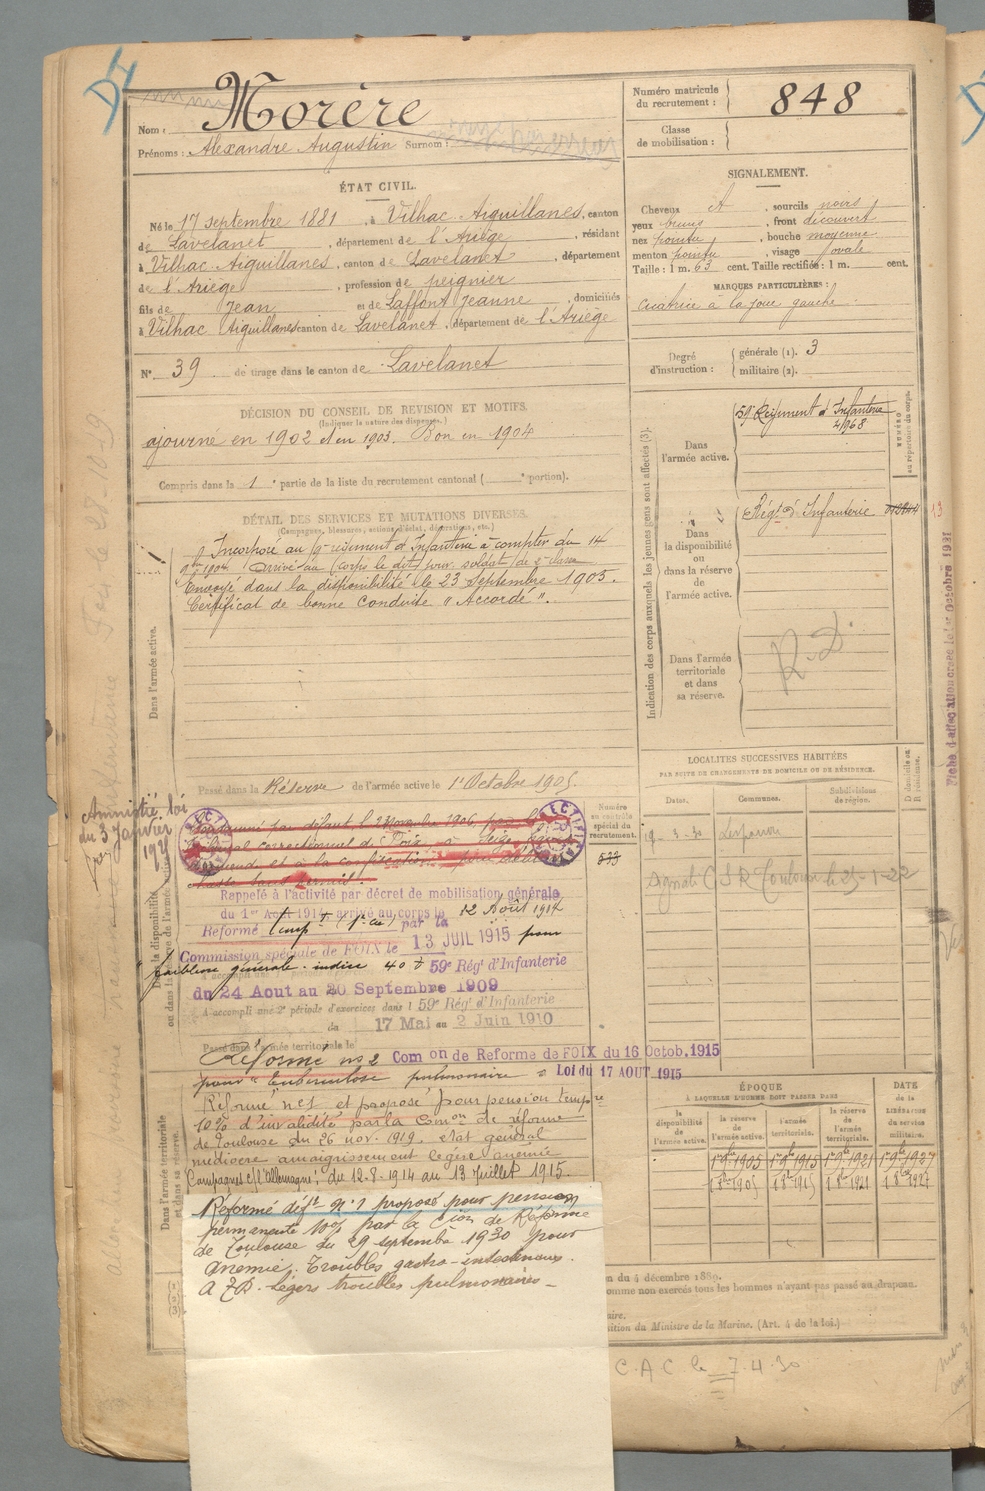 Nom : Morère
Prénoms : Alexandre Augustin Surnom :
Numéro matricule du recrutement : 848
Classe de mobilisation :
ÉTAT CIVIL.
Né le 17 septembre 1881, à Vilhac Aiguillanes, canton
de Lavelanet, département de l'Ariège, résidant
à Vilhac Aiguillanes, canton de Lavelanet, département
de l'Ariège, profession de peignier
fils de Jean et de Laffont Jeanne domiciliés
à Vilhac Aiguillanes canton de Lavelanet, département de l'Ariège
N° 39 de tirage dans le canton de Lavelanet
SIGNALEMENT.
Cheveux, sourcils noirs
yeux bruns, front découvert
nez pointu, bouche moyenne
menton pointu, visage ovale
Taille : 1 m. 63 cent. Taille rectifiée : 1 m. cent.
MARQUES PARTICULIÈRES :
cicatrice à la joue gauche
Degré d'instruction : générale (1). 3
militaire (2).
DÉCISION DU CONSEIL DE REVISION ET MOTIFS.
(Indiquer la nature des dispenses.)
ajourné en 1902 et en 1903. Bon en 1904
Compris dans la 1e partie de la liste du recrutement cantonal ( e portion).
DÉTAIL DES SERVICES ET MUTATIONS DIVERSES.
(Campagnes, blessures, actions d'éclat, décorations, etc.)
Dans l'armée active.
Incorporé au 59e régiment d'Infanterie à compter du 14
9bre 1904 Arrivé au corps le dit jour soldat de 2e classe
Envoyé dans la disponibilité le 23 Septembre 1905.
Certificat de bonne conduite "Accordé".
Passé dans la Réserve de l'armée active le 1er Octobre 1905.
Indication des corps auxquels les jeunes gens sont affectés (3).
Dans l'armée active.
59e Régiment d'Infanterie
NUMÉRO au répertoire du corps.
Dans la disponibilité ou dans la réserve de l'armée active.
Régt d'Infanterie
Dans l'armée territoriale et dans sa réserve.
R.D.
Fiche d'affectation créée le 1er Octobre 1921
LOCALITÉS SUCCESSIVES HABITÉES
PAR SUITE DE CHANGEMENTS DE DOMICILE OU DE RÉSIDENCE.
Dates. Communes. Subdivisions de région. D domicile ou R résidence.
19-3-30
CSR Toulouse le 25-1-22
Amnistié loi
du 3 Janvier
Dans la disponibilité ou dans la réserve de l'armée active
Condamné par défaut le 2 Novembre 1906, par le
tribunal correctionnel de Foix à seize francs
d'amende et à la confiscation pour délit de
chasse sans permis.
RECTIFICATION
Numéro au contrôle spécial du recrutement.
533
Rappelé à l'activité par décret de mobilisation générale
du 1er Août 1914, arrivé au corps le 12 Août 1914
Réformé tempre par la
Commission spéciale de FOIX le 13 JUIL 1915 pour
faiblesse générale. indice 40
A accompli 59e Régt d'Infanterie
du 24 Aout au 20 Septembre 1909
A accompli une 2e période d'exercices dans l 59e Régt d'Infanterie
du 17 Mai au 2 Juin 1910
Passé dans l'armée territoriale le
Dans l'armée territoriale et dans sa réserve.
Réformé n°2 Comon de Reforme de FOIX du 16 Octob. 1915
pour "tuberculose pulmonaire" Loi du 17 AOUT 1915
Réformé n°1 et proposé pour pension tempre
10% d'invalidité par la Comon de réforme
de Toulouse du 26 nov. 1919. état général
médiocre amaigrissement légère anémie
Campagnes c/ l'Allemagne : du 12-8-1914 au 13 Juillet 1915.
Réformé déft n°1 proposé pour pension
permanente 10% par la Con de Réforme
de Toulouse du 29 septembre 1930 pour
anémie. Troubles gastro-intestinaux.
Légers troubles pulmonaires
ÉPOQUE
À LAQUELLE L'HOMME DOIT PASSER DANS
la disponibilité de l'armée active. la réserve de l'armée active. l'armée territoriale. la réserve de l'armée territoriale. DATE de la LIBÉRATION du service militaire.
1er 9bre 1905 1er 9bre 1915 1er 9bre 1921 1er 9bre 1927
1er 8bre 1905 1er 8bre 1915 1er 8bre 1921 1er 8bre 1927
n du 4 décembre 1889.
omme non exercés tous les hommes n'ayant pas passé au drapeau.
aire.
sition du Ministre de la Marine. (Art. 4 de la loi.)
C.A.C le 7.4.30